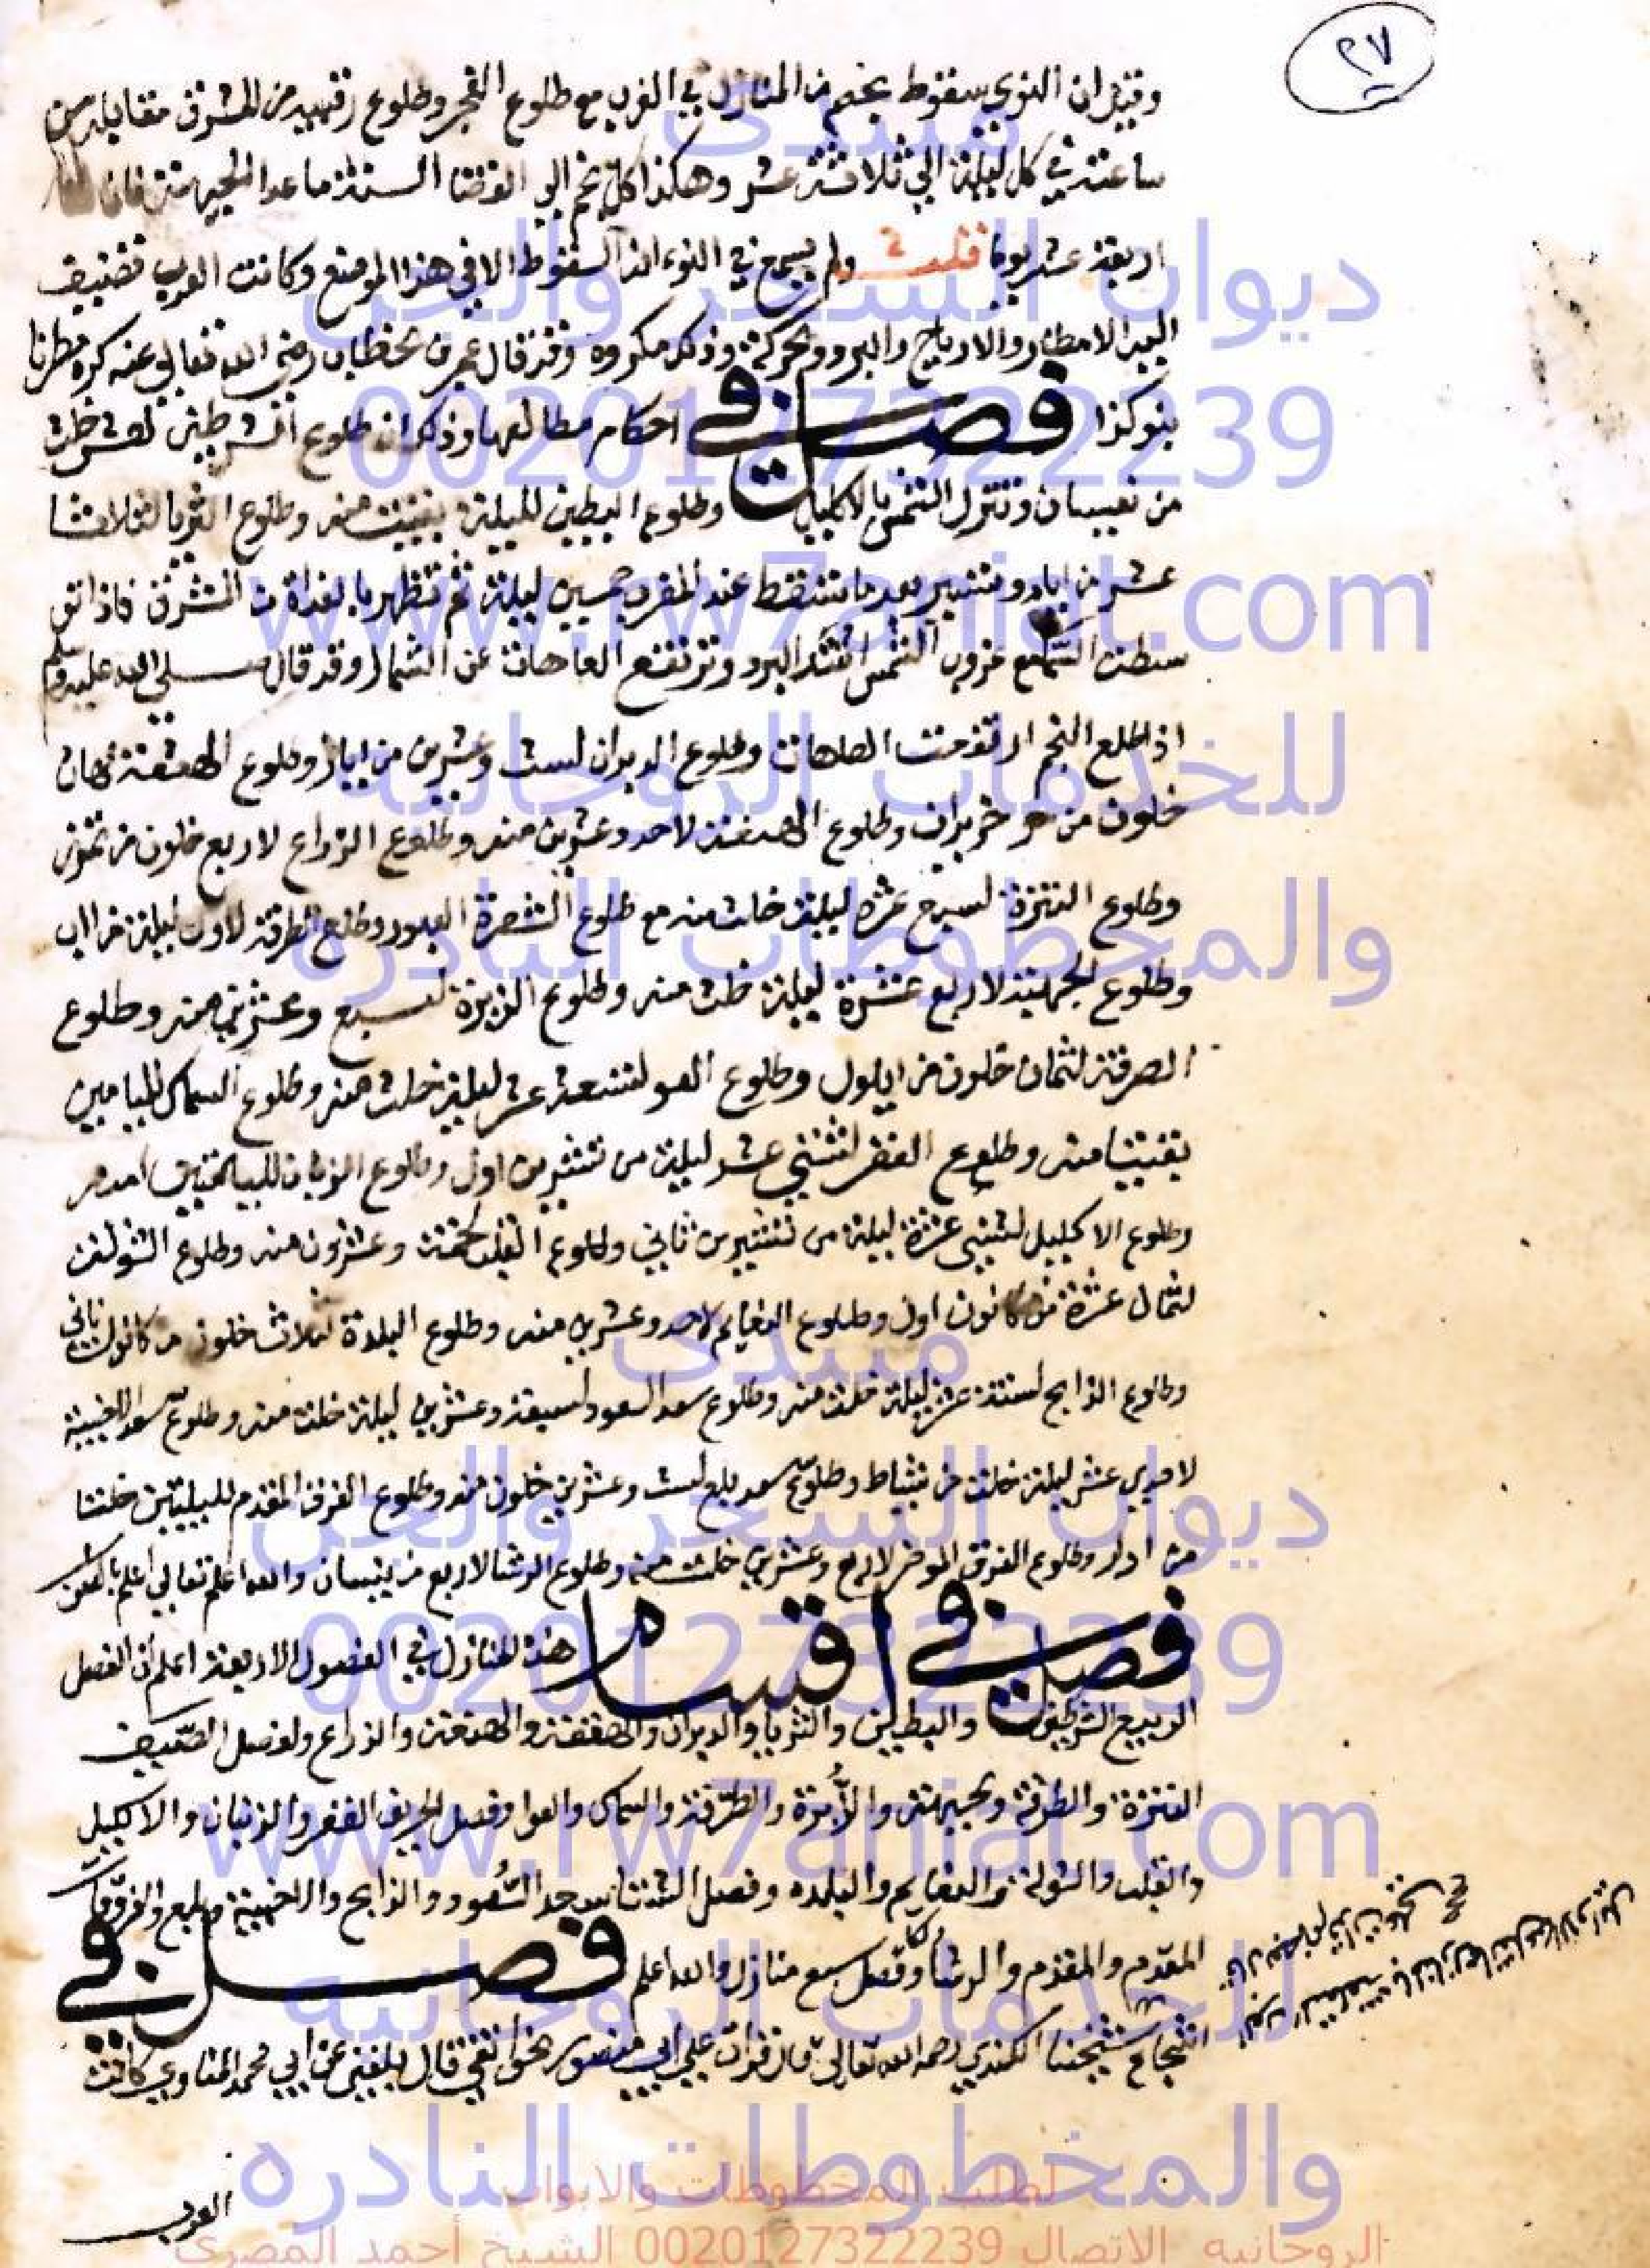 ٢٧
وقيل ان النوي سقوط نجم من المنازل في الغرب مع طلوع الفجر وطلوع رقيبه من المشرق مقابله من
ساعته في كل ليلة الي ثلاثة عشر وهكذا كل نجم الي انقضا السنة ما عدا الجبهة فان لها
اربعة عشر يوما قلت ولم يسمع في النوء انه السقوط الا في هذا الموضع وكانت العرب تضيف
اليه الامطار والارياح والبرد والحركة وذلك مكروه وقد قال عمر بن الخطاب رضي الله تعالي عنه كره مطرنا
بنو كذا فصل في احكام مطالعها وذلك ان طلوع الشرطين لعشر خلت
من نيسان وتنزل الشمس بالاكليل وطلوع البطين لليلة بقيت منه وطلوع الثريا لثلاثا
عشر من ايار وتستتر بعد ما تسقط عند المغرب خمسين ليلة ثم تظهر بالغداة من المشرق فاذا اتو
سطت السما مع غروب الشمس اشتد البرد وترتفع العاهات عن الشمار وقد قال صلي الله عليه وسلم
اذا طلع النجم ارتفعت العاهات وطلوع الدبران لست وعشرين من ايار وطلوع الهقعة ثمان
خلون من حزيران وطلوع الهنعة لاحد وعشرين منه وطلوع الذراع لاربع خلون من تموز
وطلوع النثرة لسبع عشرة ليلة خلت منه مع طلوع الشعرة العبور وطلوع الطرفة لاول ليلة من اب
وطلوع الجبهة لاربع عشرة ليلة خلت منه وطلوع الزبرة لسبع وعشرين منه وطلوع
الصرفة لثمان خلون من ايلول وطلوع العو لتسعة عشر ليلة خلت منه وطلوع السماك لليلتين
بقيتا منه وطلوع الغفر لثنتي عشر ليلة من تشرين اول وطلوع الزبانا لليلتين
وطلوع الاكليل لثنتي عشرة ليلة من تشرين ثاني وطلوع القلب لخمسة وعشرون منه وطلوع الشولة
لثمان عشرة من كانون اول وطلوع النعايم لاحد وعشرين منه وطلوع البلدة لثلاث خلون من كانون ثاني
وطلوع الذابح لستة عشر ليلة خلت منه وطلوع سعد السعود لسبعة وعشرين ليلة خلت منه وطلوع سعد الاخبية
لاحدي عشر ليلة خلت من شباط وطلوع سعد بلع لست وعشرين خلون منه وطلوع الفرق المقدم لليلتين خلتا
من ادار وطلوع الفرق الموخر لاربع وعشرين خلت منه وطلوع الرشا لاربع من نيسان والله اعلم تعالي اعلم
فصل في اقسام هذه المنازل في الفصول الاربعة اعلم ان الفصل
الربيع الشرطين والبطين والثريا والدبران والهقعة والهنعة والذراع ولفصل الصيف
النثرة والطرفة والجبهة والزبرة والصرفة والسماك والعوا وفصل الخريف الغفر والزبانا والاكليل
والقلب والشولة والنعايم والبلده وفصل الشتا سعد السعود والذابح والاخبية وبلع والفرق
المقدم والرشا لكل فصل سبع منازل والله اعلم فصل في
شيخنا الكندي رحمه الله تعالي قال قرات علي ابي منصور قال بلغني عن ابي محمد كانت
العرب
منتدى
ديوان السحر والجن
00201273322239
www.rw7aniat.com
للخدمات الروحانيه
والمخطوطات النادره
منتدى
ديوان السحر والجن
0020127322239
www.rw7aniat.com
للخدمات الروحانيه
والمخطوطات النادره
لطلب المخطوطات والابواب
الروحانيه الاتصال 0020127322239 الشيخ أحمد المصرى